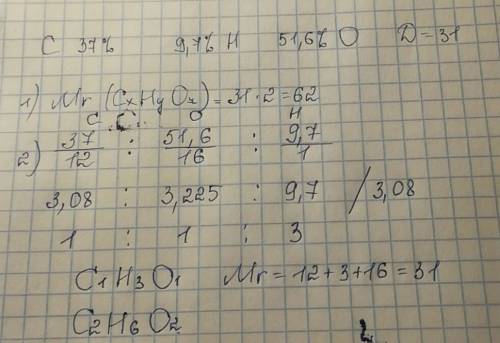 C 37% 9,7% H 51,6% O D=31
1) Mr (CxHyOz) = 31·2=62
C O H
2) 37/12 : 51,6/16 : 9,7/1
3,08 : 3,225 : 9,7 / 3,08
1 : 1 : 3
C1H3O1 Mr = 12+3+16=31
C2H6O2